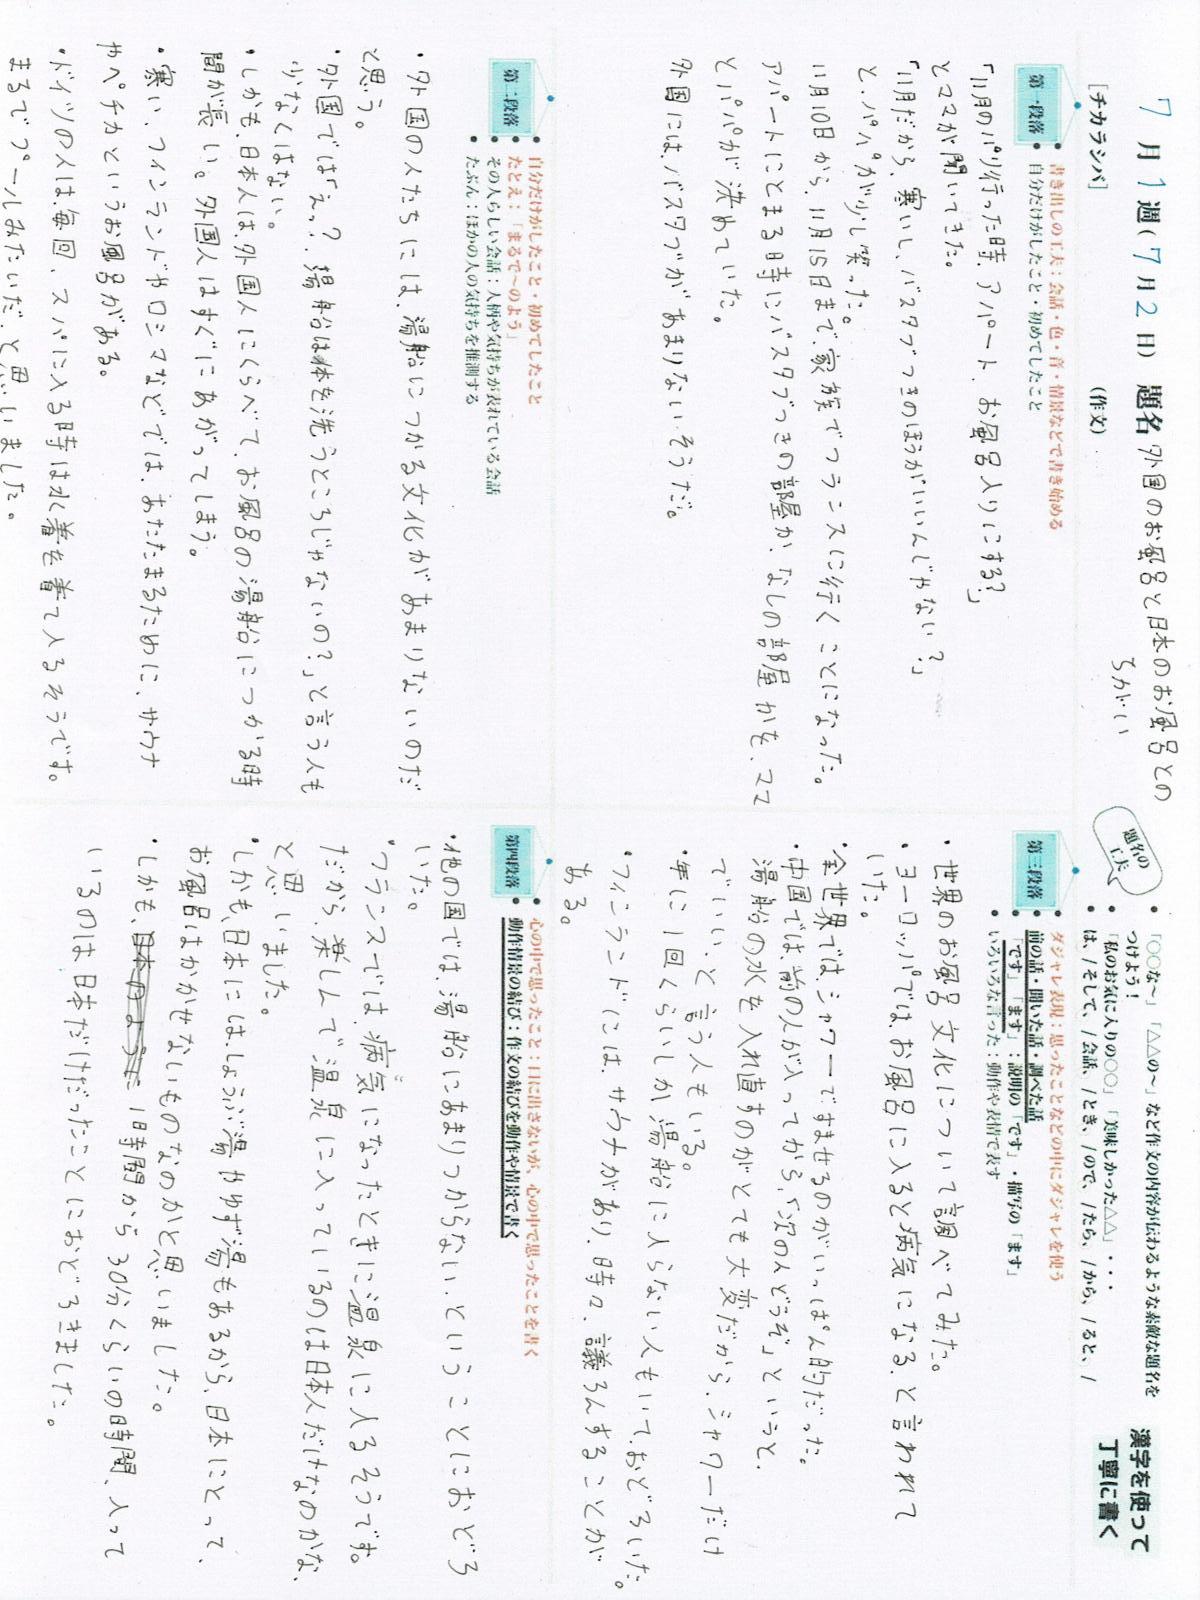 7月1週(7月2日) 題名 外国のお風呂と日本のお風呂との
ちがい
[チカラシバ]
(作文)
題名の
工夫
• 「○○な～」「△△の～」など作文の内容が伝わるような素敵な題名を
つけよう！
• 「私のお気に入りの○○○」「美味しかった△△」・・・
• は、/そして、/会話、/とき、/ので、/たら、/から、/ると、/
漢字を使って
丁寧に書く
第一段落
• 書き出しの工夫：会話・色・音・情景などで書き始める
• 自分だけがしたこと・初めてしたこと
「11月のパリ行った時、アパート、お風呂入りにする?」
とママが聞いてきた。
「11月だから、寒いし、バスタブつきのほうがいいんじゃない?」
と、パパが少し笑った。
11月10日から、11月15日まで、家族でフランスに行くことになった。
アパートにとまる時にバスタブつきの部屋か、なしの部屋かを、ママ
とパパが決めていた。
外国には、バスタブがあまりない、そうだ。
第二段落
• 自分だけがしたこと・初めてしたこと
• たとえ：「まるで～のよう」
• その人らしい会話：人柄や気持ちが表れている会話
• たぶん：ほかの人の気持ちを推測する
・外国の人たちには、湯船につかる文化があまりないのだ
と思う。
・外国では「えっ?、湯船は体を洗うところじゃないの?」と言う人も
少なくはない。
・しかも、日本人は、外国人にくらべて、お風呂の湯船につかる時
間が長い。外国人はすぐにあがってしまう。
・寒い、フィンランドやロシアなどでは、あたたまるために、サウナ
やペチカというお風呂がある。
・ドイツの人は、毎回、スパに入る時は水着を着て入るそうです。
まるでプールみたいだ、と思いました。
第三段落
• ダジャレ表現：思ったことなどの中にダジャレを使う
• 前の話・聞いた話・調べた話
• 「です」「ます」：説明の「です」・描写の「ます」
• いろいろな言った：動作や表情で表す
・世界のお風呂文化について調べてみた。
・ヨーロッパでは、お風呂に入ると病気になる、と言われて
いた。
・全世界では、シャワーですませるのがいっぱん的だった。
・中国では、前の人が入ってから、「次の人どうぞ」というと、
湯船の水を入れ直すのがとても大変だから、シャワーだけ
でいい、と言う人もいる。
・年に1回くらいしか湯船に入らない人もいて、おどろいた。
・フィンランドには、サウナがあり、時々、議ろんすることが
ある。
第四段落
• 心の中で思ったこと：口に出さないが、心の中で思ったことを書く
• 動作情景の結び：作文の結びを動作や情景で書く
・他の国では、湯船にあまりつからない、ということにおどろ
いた。
・フランスでは、病気になったときに温泉に入るそうです。
だから、楽しんで温泉に入っているのは日本人だけなのかな、
と思いました。
・しかも、日本にはしょうぶ湯やゆず湯もあるから、日本にとって、
お風呂はかかせないものなのかと思いました。
・しかも、日本のように 1時間から30分くらいの時間、入って
いるのは日本だけだったことにおどろきました。